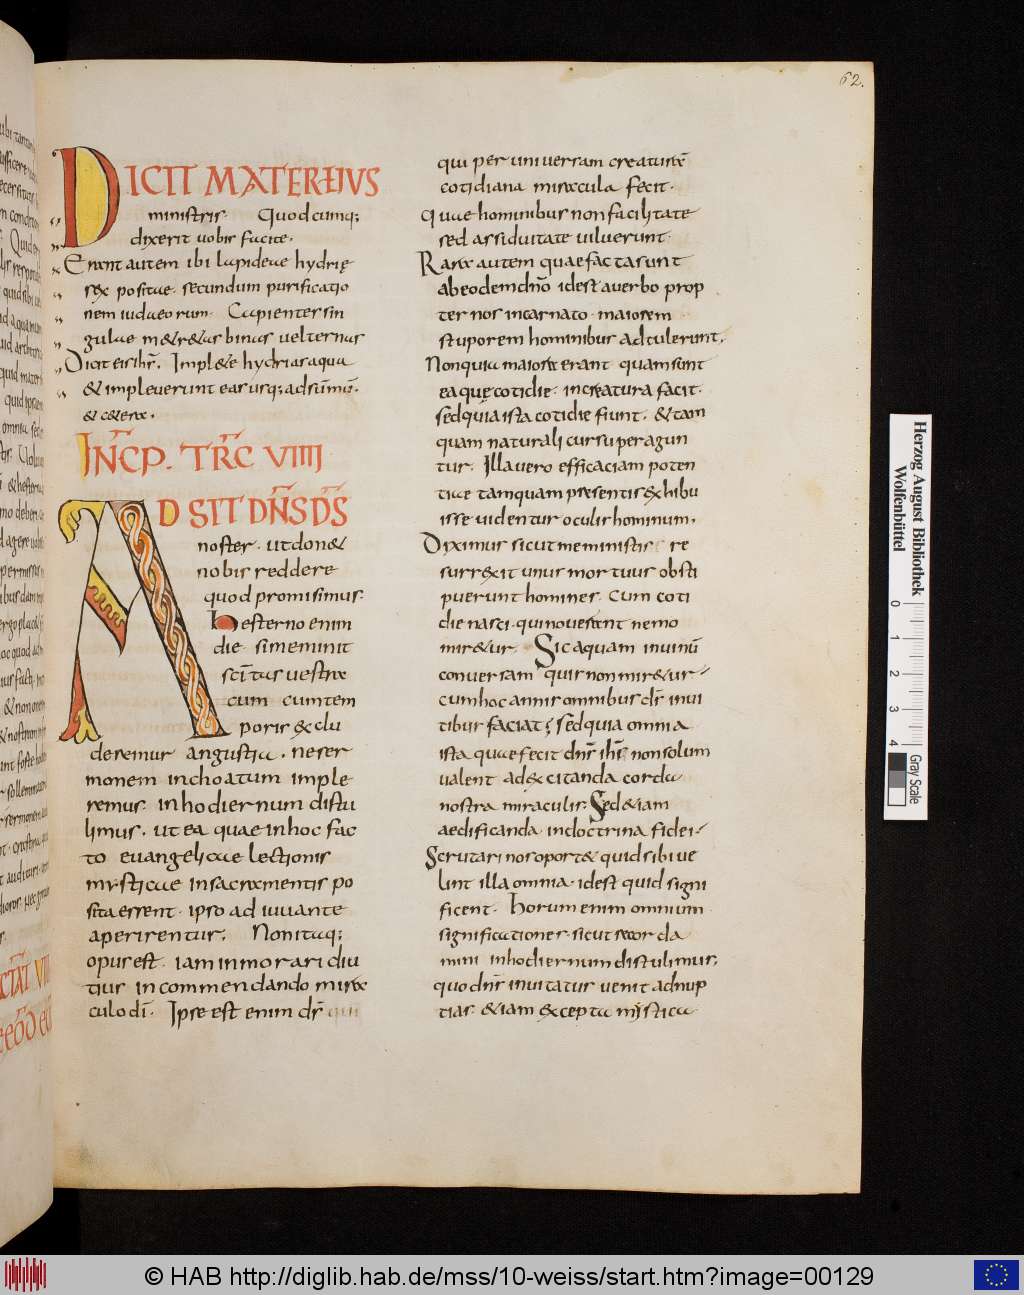 62.
DICIT MATER EIVS
ministris. Quodcumq;
dixerit uobis facite.
Erant autem ibi lapideae hydrię
sex positae. secundum purificatio
nem iudaeorum. Capientes sin
gulae m&r&as binas uel ternas
Dicit eis ihs. Impl&e hydrias aqua
& impleuerunt eas usq; ad summū.
& c&era.
INCP. TRC VIIII
AD SIT DNS DS
noster. ut don&
nobis reddere
quod promisimus.
hesterno enim
die simeminit
scitas uestra
cum cumtem
poris & clu
deremur angustia. ne ser
monem inchoatum imple
remus. in hodiernum distu
limus. ut ea quae in hoc fac
to euangelicae lectionis
mysticae in sacramentis po
sita essent. ipso adiuuante
aperirentur; Non itaq;
opus est. iam inmorari diu
tius in commendando mira
culo di. Ipse est enim ds qui
qui per uniuersam creaturā
cotidiana miracula fecit.
Quae hominibus non facilitate
sed assiduitate uiluerunt.
Rara autem quae facta sunt
ab eodem dno idest a uerbo prop
ter nos incarnato. maiorem
stuporem hominibus adtulerunt.
Non quia maiora erant quam sunt
ea quę cotidie. in creatura facit.
sed quia ista cotidie fiunt. & tam
quam naturali cursu peragun
tur. Illa uero efficaciam poten
tiae tamquam presentis exhibu
isse uidentur oculis hominum.
Diximus sicut meministis re
surrexit unus mortuus obsti
puerunt homines. Cum coti
die nasci. qui non erant nemo
mir&ur. Sic aquam in uinū
conuersam quis non mir&ur
cum hoc annis omnibus ds in ui
tibus faciat; sed quia omnia
ista quae fecit dns ihs non solum
ualent ad excitanda corda
nostra miraculis. Sed &iam
aedificanda in doctrina fidei
Scrutari nos oport& quid sibi ue
lint illa omnia. idest quid signi
ficent. Horum enim omnium
significationes. sicut recorda
mini in hodiernum distulimus.
quo dns inuitatus uenit ad nup
tias. &iam excepta mystica
Herzog August Bibliothek
Wolfenbüttel
0 1 2 3 4
Gray Scale
© HAB http://diglib.hab.de/mss/10-weiss/start.htm?image=00129